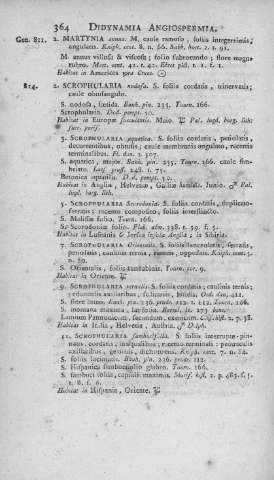 364 DIDYNAMIA ANGIOSPERMIA.
Gen. 811. 2. MARTYNIA annua. M. caule ramoso, foliis integerrimis,
angulatis. Kniph. cent. 8. n. 66. Sabb. hort. 2. t. 91.
M. annua villosa & viscosa; folio subrotundo, flore magno
rubro.
Habitat in America vera Cruce.
814. 2. SCROPHULARIA nodosa. S. foliis cordatis, trinervatis;
caule obtusangulo.
S. nodosa, foetida. Bauh. pin. 235. Tourn. 166.
Scrophularia. Dod. pempt. 50.
Habitat in Europae succulentis. Majo. Pal. lugd. borg. lith
3. SCROPHULARIA aquatica. S. foliis cordatis, petiolatis,
decurrentibus, obtusis; caule membranis angulato, racemis
terminalibus. Fl. dan. t. 507.
S. aquatica, major. Bauh. pin. 235. Tourn. 166. caule
Betonica aquatilis. D. d. pempt. 50.
Habitat in Angliae, Helvetiae, Galliae humidis. Junio. Pal.
lugd. borg. lith.
5. SCROPHULARIA Scorodonia. S. foliis cordatis, duplicato-
serratis; racemo composito, foliis interstincto.
S. Melissae folio. Tourn. 166.
Scorodoniae folio. Pluk. alm. 338. t. 59. f. 5.
Habitat in Lusitania & Jersea insula Angliae; in Sibiria.
7. SCROPHULARIA Orientalis. S. foliis lanceolatis, serratis,
petiolatis, caulinis ternis, rameis oppositis. Kniph. cent. 5.
n. 80.
S. Orientalis, foliis cannabinis. Tourn. cor. 9.
Habitat in Oriente.
9. SCROPHULARIA vernalis. S. foliis cordatis; caulinis ternis;
pedunculis axillaribus, solitariis, bifidis. Oed. dan. 411.
S. flore luteo. Bauh. pin. 236. prodr. 112. t. 112. Tourn. 166.
S. montana maxima, latifolia.
Lamium Pannonicum, secundum, exoticum. Clus. hist. 2. p. 38.
Habitat in Italia, Helvetia, Austria.
11. SCROPHULARIA sambucifolia. S. foliis interrupte-pin-
natis, cordatis, inaequalibus; racemo terminali; pedunculis
axillaribus, geminis, dichotomis. Kniph. cent. 7. n. 84.
S. foliis laciniatis. Bauh. pin. 236. prodr. 112.
S. Hispanica sambuci folio glabro. Tourn. 166.
S. sambuci foliis, capitulis maximis. Moris. hist. 2. p. 483. s. 5.
t. 8. f. 6.
Habitat in Hispania, Oriente.